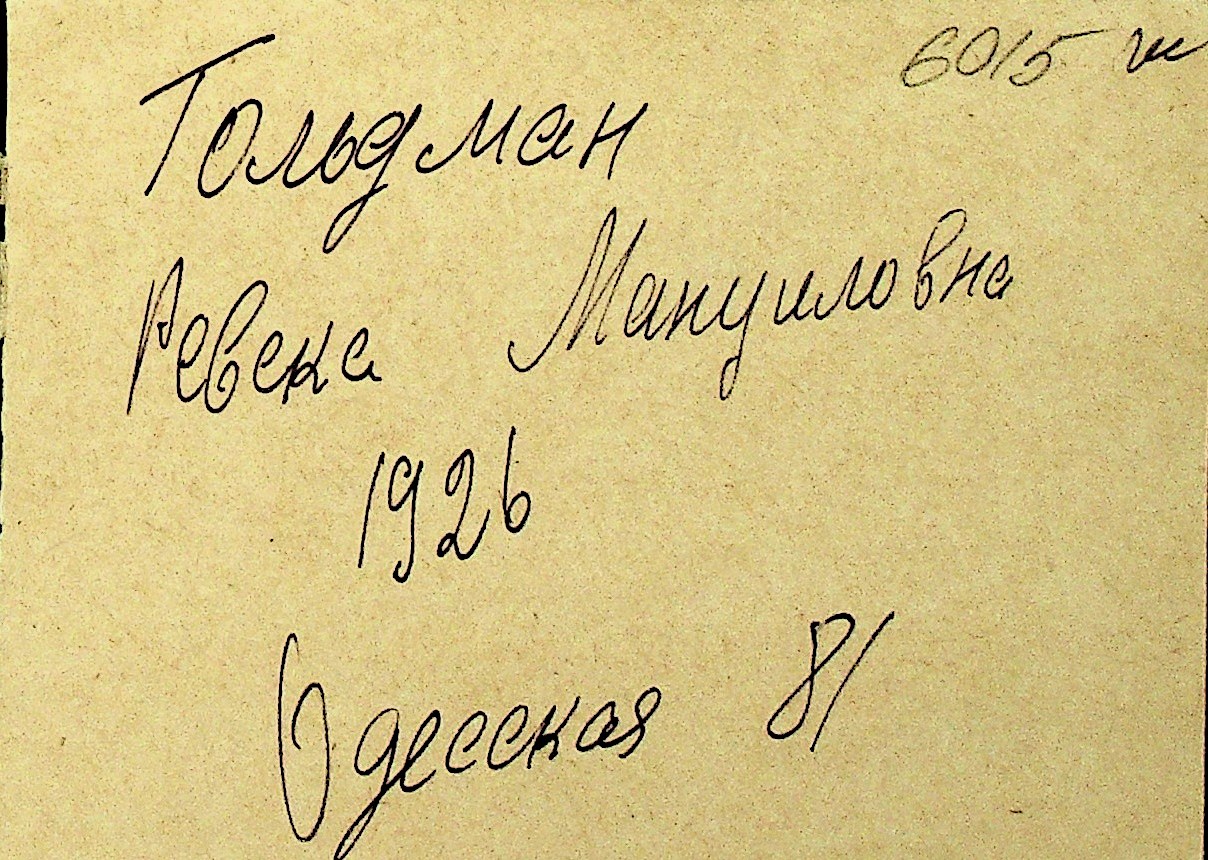 6015 ж
Гольдман
Ревека Мануиловна
1926
Одесская 81